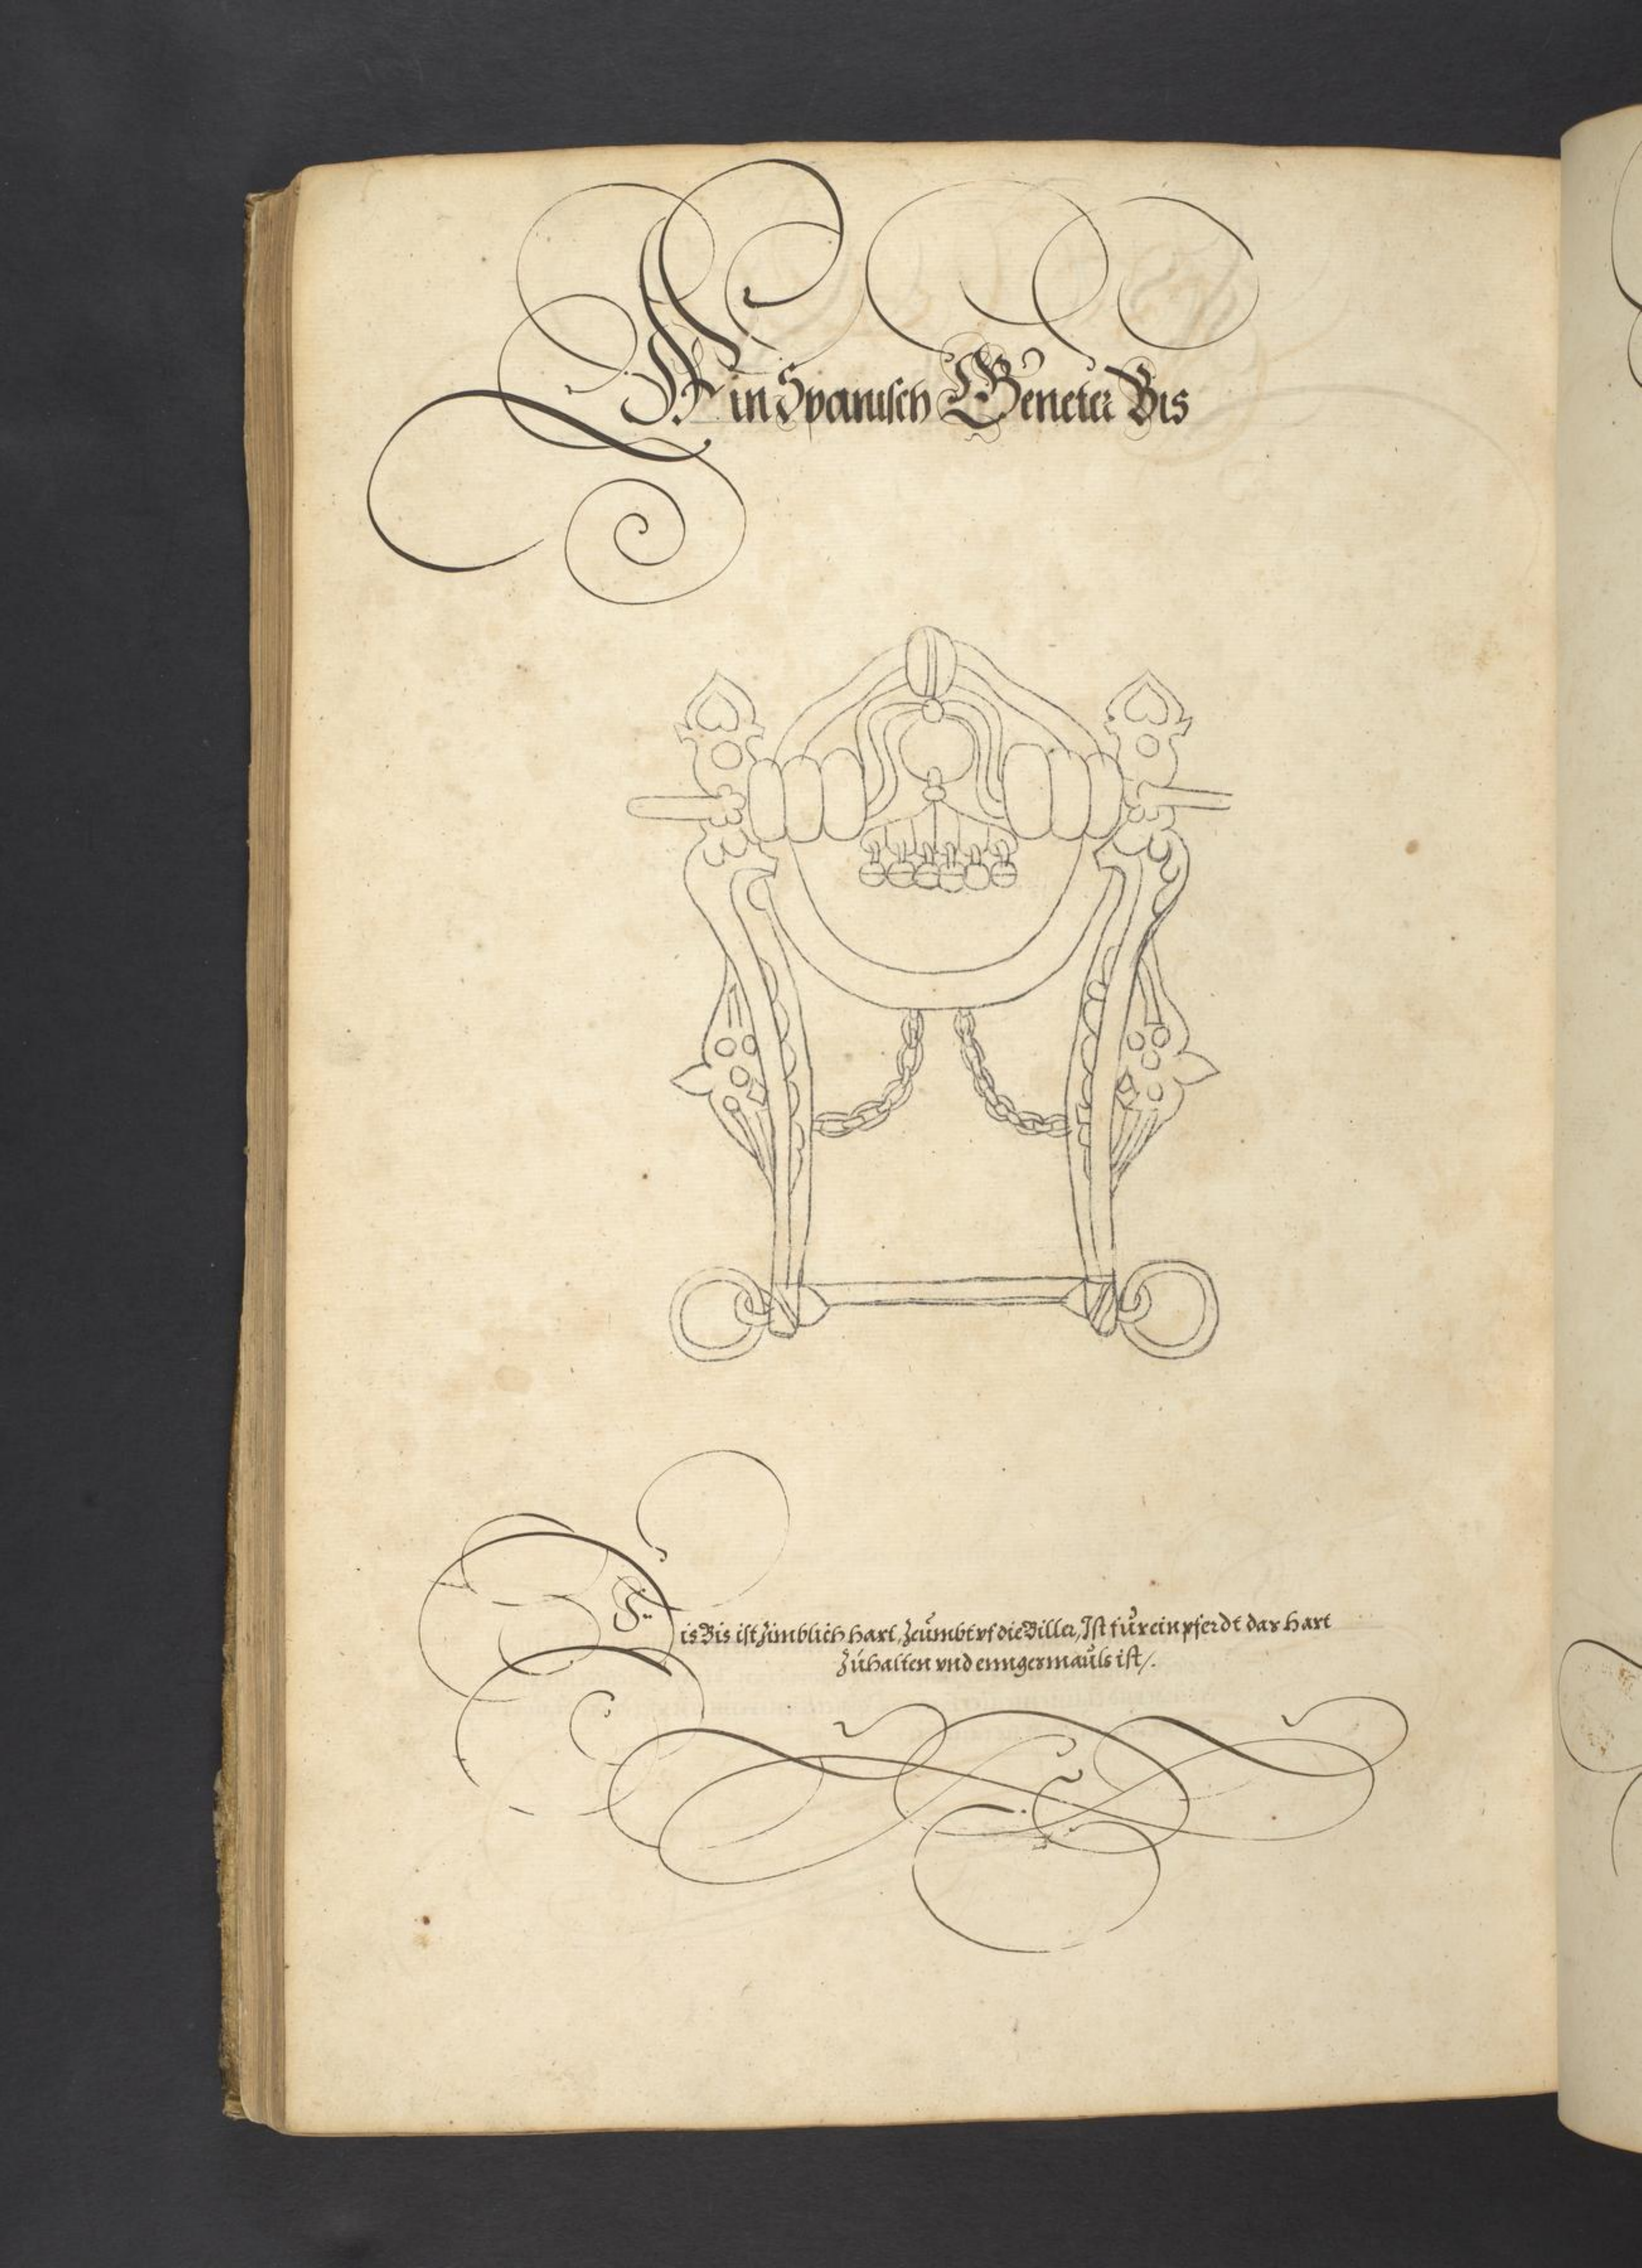 Ain Spanisch Geneter Bis
Dis Bis ist zimblich hart, Zeumbt vf die Biller, Ist für ein pferdt das hart
Zúhalten vnd enngermauls ist /.